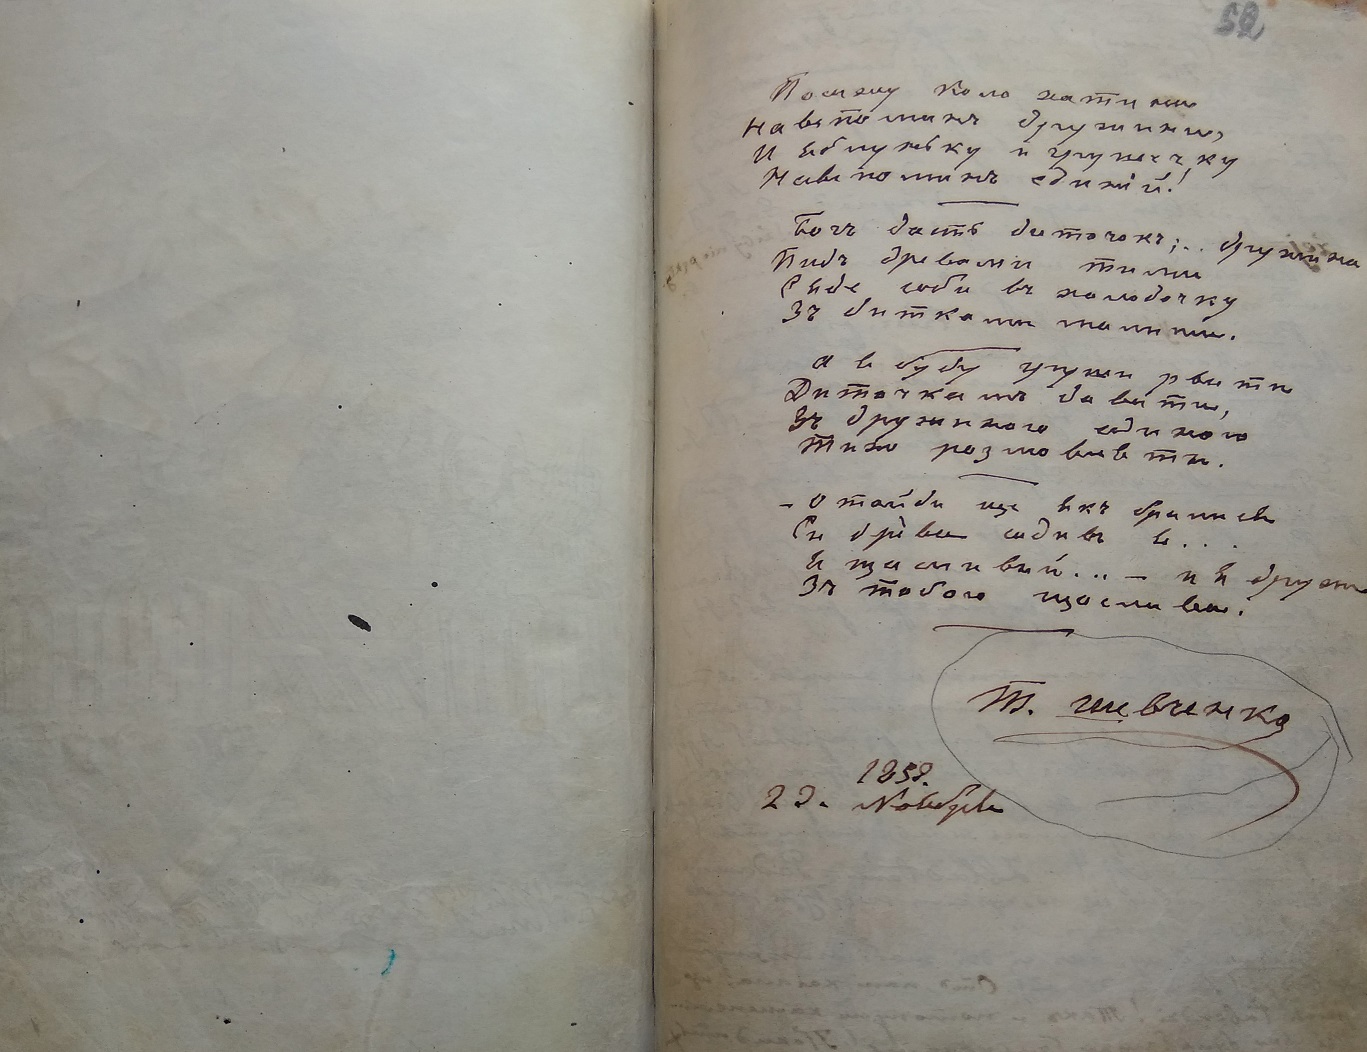 52
Посажу коло хатини
На вспоминъ дружини,
И яблуньку и грушечку
На вспоминъ единій!
Богъ дасть диточокъ;.. дружина
Пидъ древами тими
Сяде соби въ холодочку
Зъ дитками малими.
А я буду груши рвати
Диточкамъ давати,
Зъ дружиною единою
Тихо розмовляти.
– Отойди ще якъ бралися
Си древа садивъ я...
Я щасливий... – и я друже
Зъ тобою щаслива!
Т. Шевченко
1858.
22. Ноября